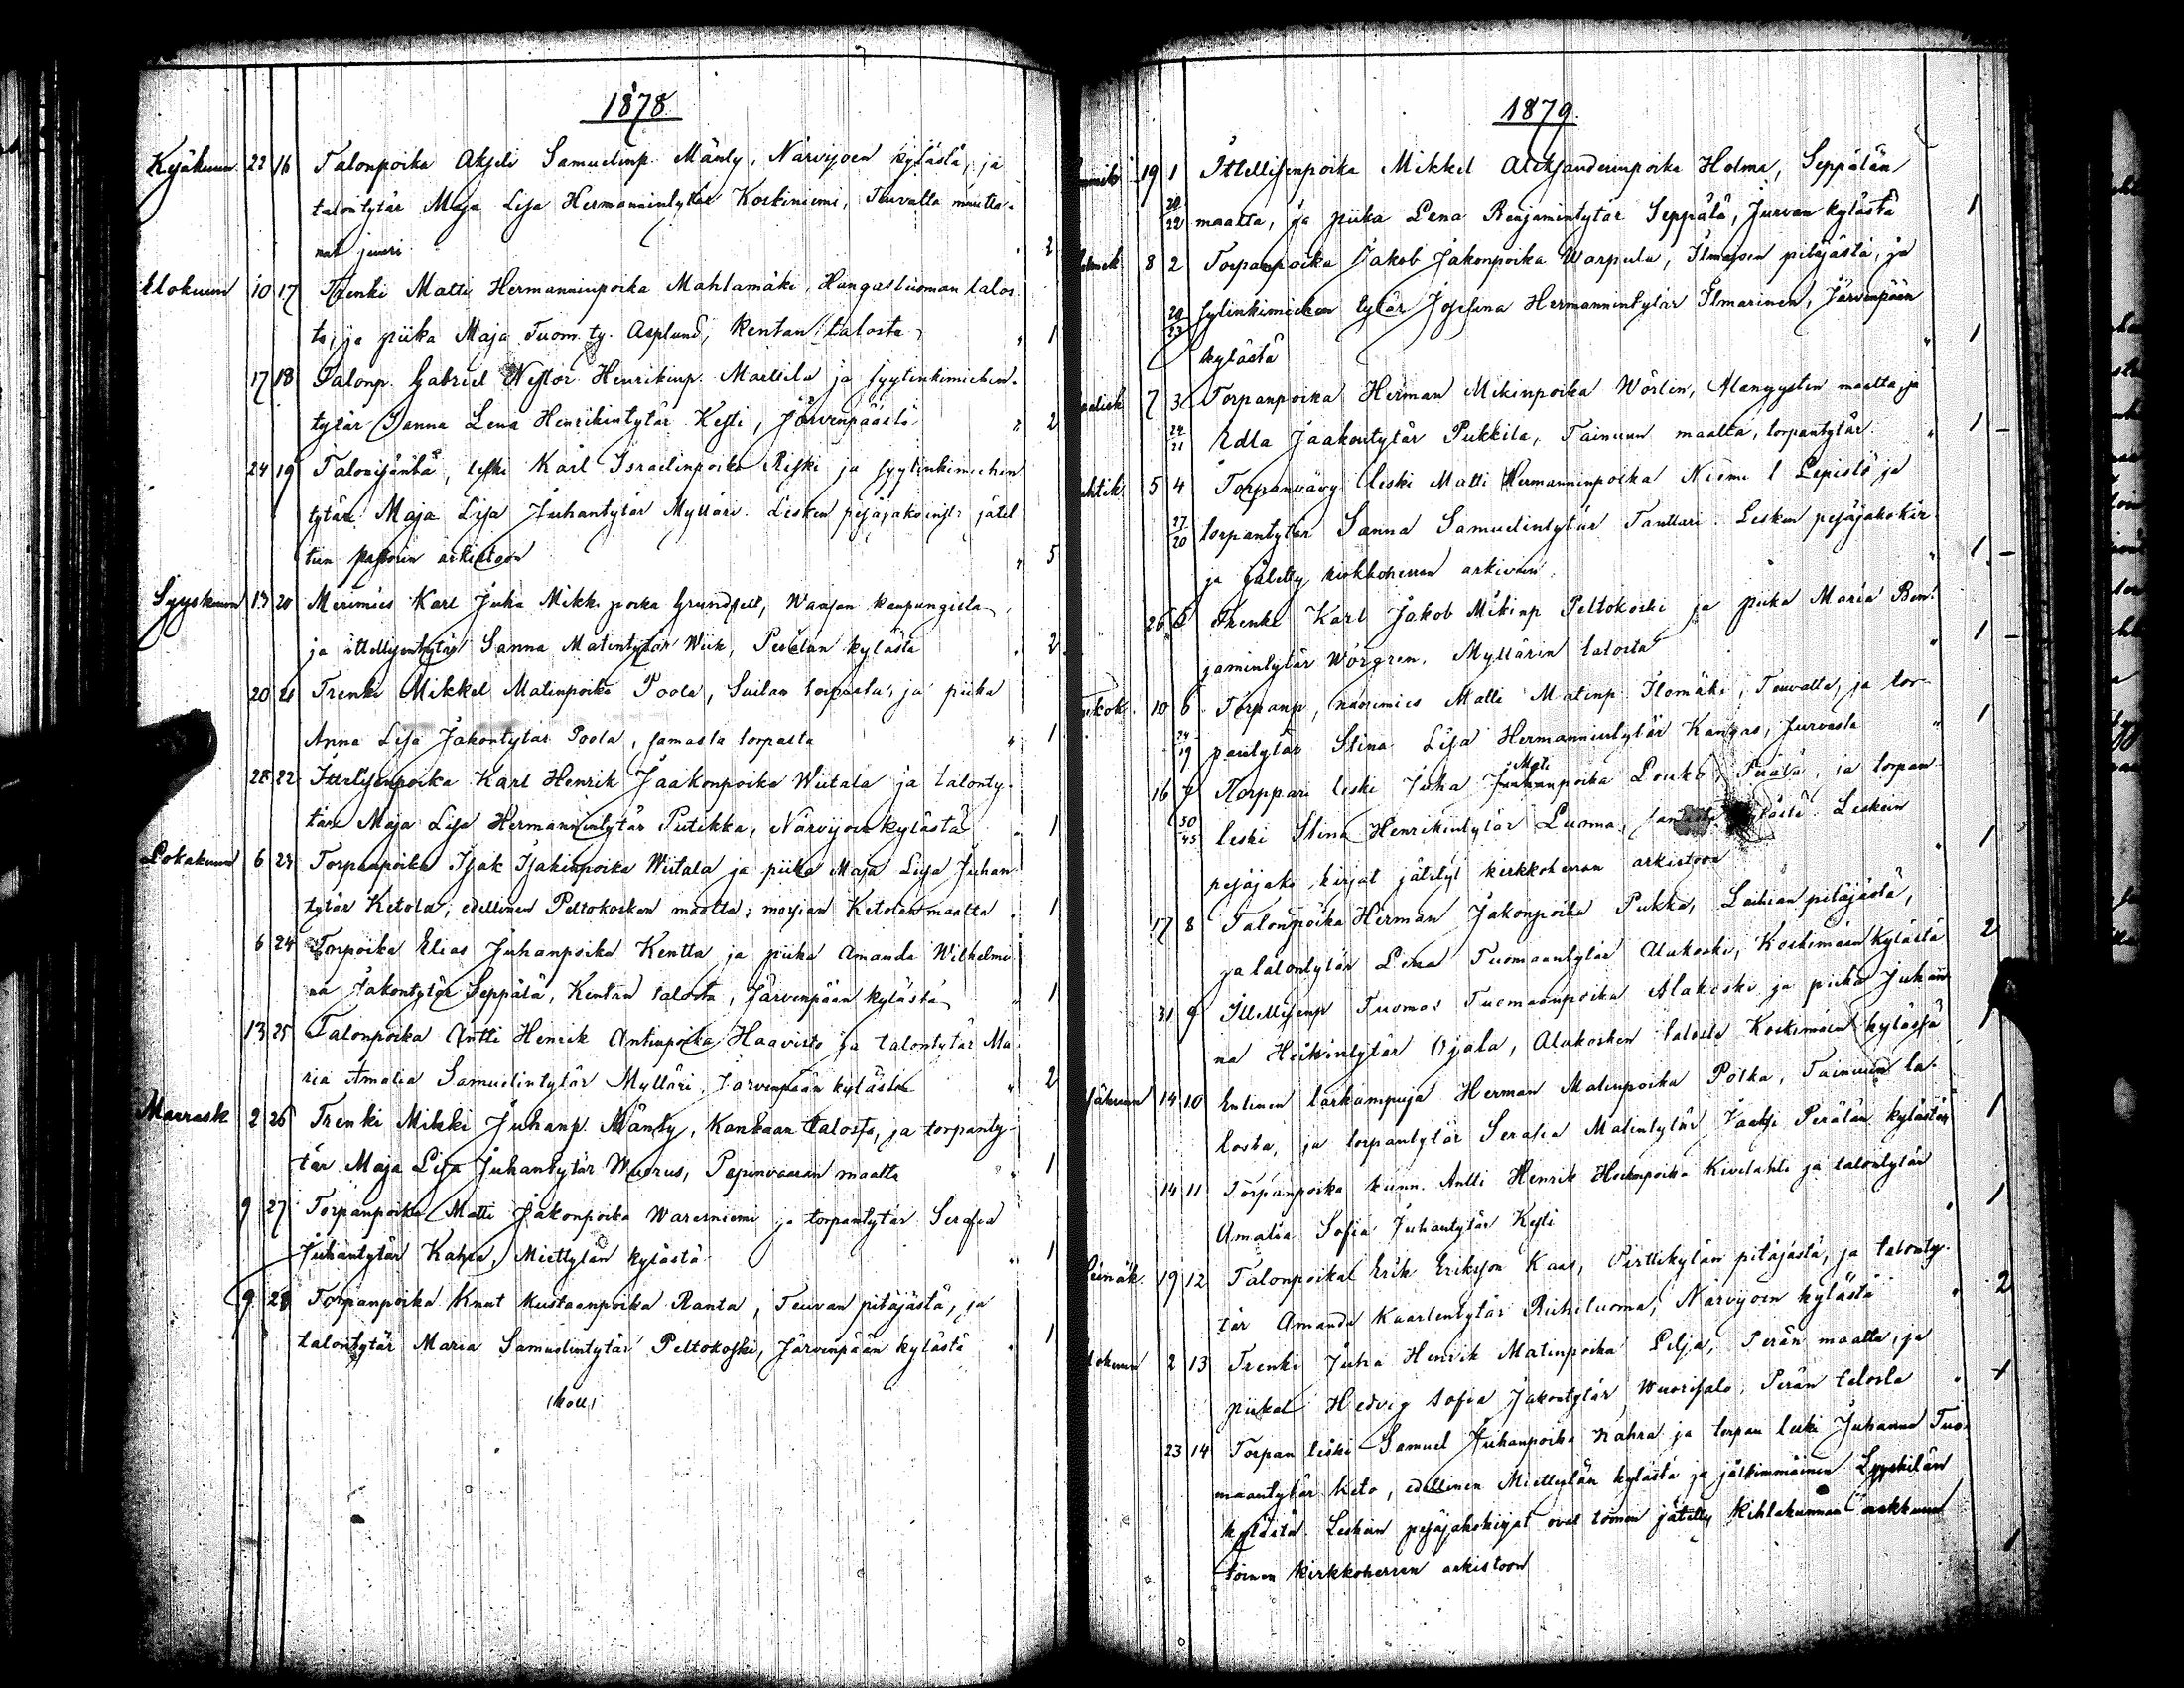 1878
Kesäkuun 22 16 Talonpoika Akseli Samuelinp. Mänty, Närvijoen kylästä, ja
talontytär Maja Lisa Hermannintytär Koskiniemi, Teuvalta muutta-
nut juuri " 2
Elokuun 10 17 Trenki Matti Hermanninpoika Mahlamäki, Hangasluoman talos-
ta, ja piika Maja Tuom. ty. Asplund, Kentan talosta " 1
17 18 Talonp. Gabriel Nestor Henrikinp. Marttila ja syytinkimiehen-
tytär Sanna Lena Henrikintytär Kesti, Järvenpäästä " 2
24 19 Talonisäntä, leski Karl Israelinpoika Riski ja syytinkimiehen
tytär Maja Lisa Juhantytär Mylläri. Lesken pesäjakoinst: jätet-
tiin pastorin arkistoon " 5
Syyskuun 13 20 Merimies Karl Juha Mikk. poika Grundfelt, Waasan kaupungista
ja ittellisentytär Sanna Matintytär Wiik, Perälän kylästä " 2
20 21 Trenki Mikkel Matinpoika Poola, Suilan torpasta, ja piika
Anna Lisa Jakontytär Poola, samasta torpasta " 1
28 22 Ittellisenpoika Karl Henrik Jaakonpoika Wiitala ja talonty-
tär Maja Lisa Hermannintytär Putikka, Närvijoen kylästä " 1
Lokakuun 6 23 Torpanpoika Isak Isakinpoika Wiitala ja piika Maja Lisa Juhan-
tytär Ketola, edellinen Peltokosken maalta, morsian Ketolan maalta " 1
6 24 Torpoika Elias Juhanpoika Kentta ja piika Amanda Wilhelmi-
na Jakontytär Seppälä, Kentan talosta, Järvenpään kylästä " 1
13 25 Talonpoika Antti Henrik Antinpoika Haavisto ja talontytär Ma-
ria Amalia Samuelintytär Mylläri, Järvenpään kylästä " 2
Marrask 2 26 Trenki Mikki Juhanp. Mänty, Kankaan talosta, ja torpanty-
tär Maja Lisa Juhantytär Wuorus, Papinvaaran maalta " 1
9 27 Torpanpoika Matti Jakonpoika Warerniemi ja torpantytär Serafia
Juhantytär Kahra, Miettylän kylästä " 1
9 28 Torpanpoika Knut Kustaanpoika Ranta, Teuvan pitäjästä, ja
talontytär Maria Samuelintytär Peltokoski, Järvenpään kylästä " 1
1879
19 1 Ittellisenpoika Mikkel Aleksanderinpoika Holma, Seppälän
29/22 maalta, ja piika Lena Benjamintytär Seppälä, Jurvan kylästä 1
8 2 Torpanpoika Jakob Jakonpoika Warpula, Ilmajoen pitäjästä, ja
29/23 sytinkimiehen tytär Josefina Hermannintytär Ilmarinen, Järvenpään
kylästä " 1
7 3 Torpanpoika Herman Mikinpoika Wörlin, Alangysten maalta, ja
24/21 Edla Jaakontytär Pukkila, Tainuun maalta, torpantytär " 1
5 4 Torpanvävy leski Matti Hermanninpoika Niemi l Lepistö ja
27/20 torpantytär Sanna Samuelintytär Tanttari. Lesken pesäjakokir-
ja jätetty kirkkoherran arkivuun " 1
26 5 Trenki Karl Jakob Mikinp Peltokoski ja piika Maria Ben-
jamintytär Wörgren, Myllärin talosta " 1
10 6 Torpanp, nuorimies Matti Matinp. Ilomäki, Teuvalta, ja tor-
24/19 pantytär Stina Lisa Hermannintytär Kangas, Jurvasta " 1
16 7 Torppari leski Juha Mati poika Louko, Perälä, ja torpan
50/45 leski Stina Henrikintytär Luoma, Leskein
pesäjako kirjat jätetyt kirkkoherran arkistoon " 1
17 8 Talonpoika Herman Jakonpoika Pukka, Laihian pitäjästä,
ja talontytär Lena Tuomaantytär Alakoski, Koskimäen kylästä 2
31 9 Ittellisenp Tuomas Tuomaanpoika Alakoski ja piika Juhan-
na Heikintytär Ojala, Alakosken talosta Koskimäen kylässä 1
14 10 Entinen tarkampuja Herman Matinpoika Polka, Tainuun ta-
losta, ja torpantytär Serafia Matintytär Vaaksi Perälän kylästä 1
14 11 Torpanpoika kunn. Antti Henrik Heikinpoika Kivelahti ja talontytär
Amalia Sofia Juhantytär Kesti " 1
19 12 Talonpoika Erik Eriksson Kaas, Pirttikylän pitäjästä, ja talonty-
tär Amanda Kaarlentytär Riihiluoma, Närvijoen kylästä " 2
2 13 Trenki Juha Henrik Matinpoika Lilja, Perän maalta, ja
piika Hedvig Sofia Jakontytär Wuorisalo, Perän talosta "
23 14 Torpan leski Samuel Juhanpoika Kahra ja torpan leski Juhanna Tuo-
maantytär Keto, edellinen Miettylän kylästä ja jälkimmäinen Lyyskilän
kylästä. Leskein pesäjakokirjat ovat toinen jätetty Kihlakunnan arkkuun
toinen kirkkoherran arkistoon 1